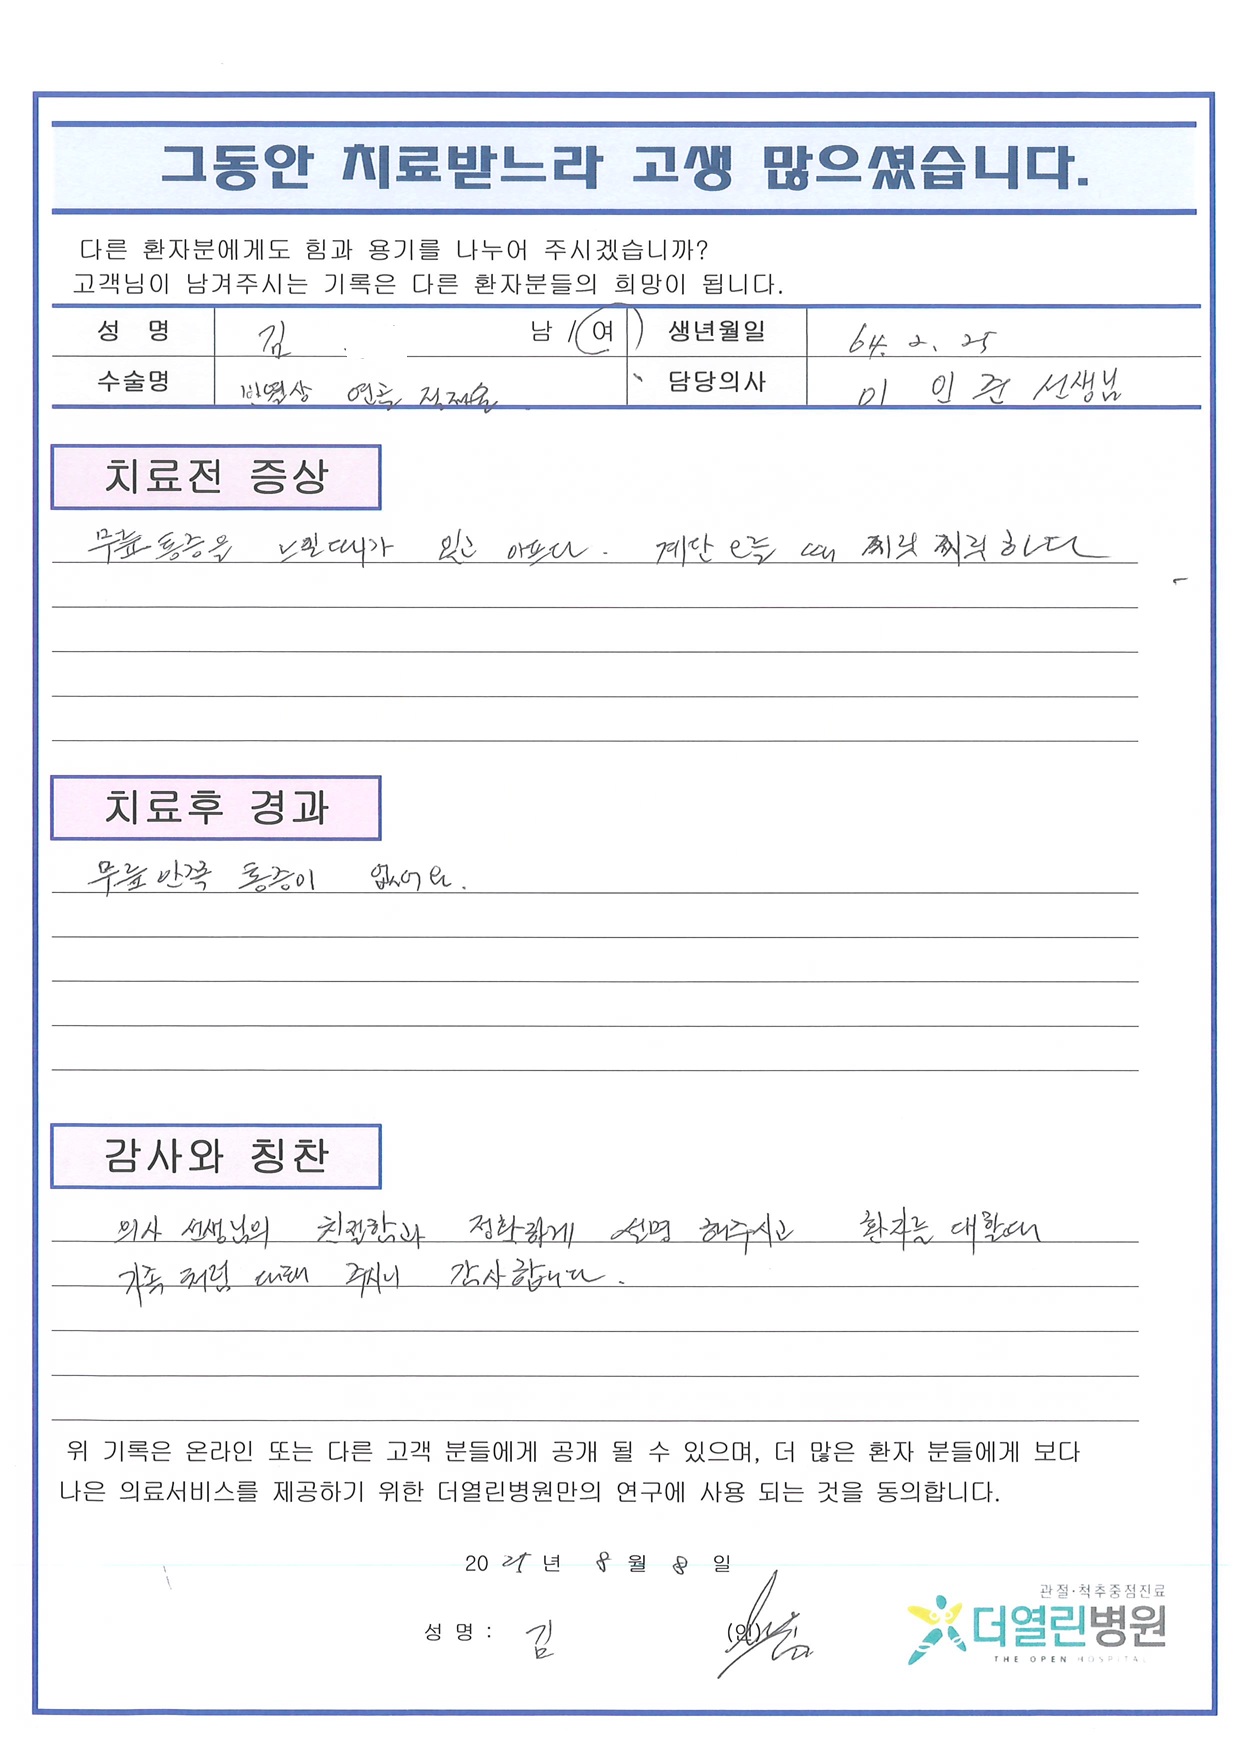 그동안 치료받느라 고생 많으셨습니다.
다른 환자분에게도 힘과 용기를 나누어 주시겠습니까?
고객님이 남겨주시는 기록은 다른 환자분들의 희망이 됩니다.
성 명 김 남 / 여 생년월일 64. 2. 25
수술명 반월상 연골 절제술. 담당의사 이 인 선생님
치료전 증상
무릎통증을 느낄때가 있고 아프다. 계단 오를 때 찌릿 찌릿하다
치료후 경과
무릎안쪽 통증이 없어요.
감사와 칭찬
의사 선생님의 친절함과 정확하게 설명 해주시고 환자를 대할때
가족처럼 대해 주시니 감사합니다.
위 기록은 온라인 또는 다른 고객 분들에게 공개 될 수 있으며, 더 많은 환자 분들에게 보다
나은 의료서비스를 제공하기 위한 더열린병원만의 연구에 사용 되는 것을 동의합니다.
20 25 년 8 월 8 일
성 명 : 김 (인)
관절·척추중점진료
더열린병원
THE OPEN HOSPITAL